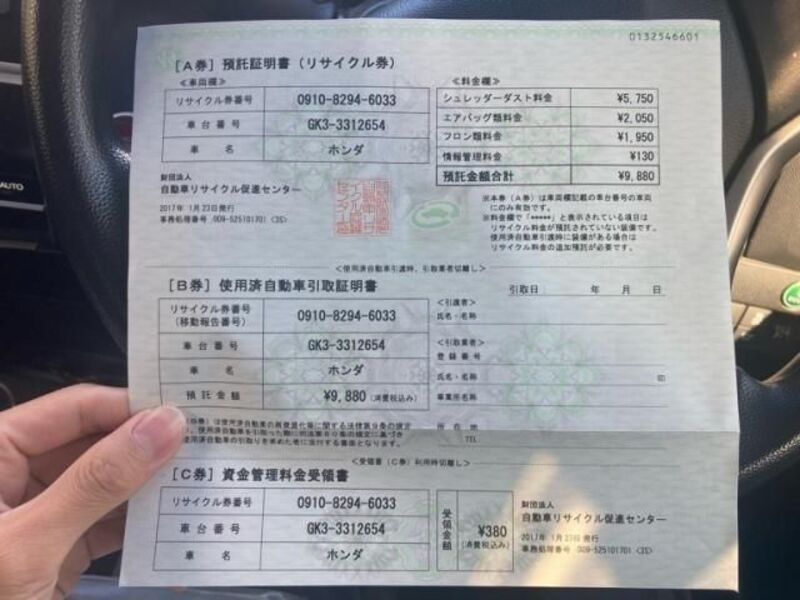 0132546601
［A券］預託証明書（リサイクル券）
≪車両欄≫
リサイクル券番号 0910-8294-6033
車台番号 GK3-3312654
車名 ホンダ
≪料金欄≫
シュレッダーダスト料金 ¥5,750
エアバッグ類料金 ¥2,050
フロン類料金 ¥1,950
情報管理料金 ¥130
預託金額合計 ¥9,880
財団法人
自動車リサイクル促進センター
2017年 1月23日発行
事務処理番号 009-525101701 <3S>
※本券（A券）は車両欄記載の車台番号の車両
にのみ有効です。
※料金欄で「*****」と表示されている項目は
リサイクル料金が預託されていない装備です。
使用済自動車引渡時に装備がある場合は
リサイクル料金の追加預託が必要です。
<使用済自動車引渡時、引取業者切離し>
［B券］使用済自動車引取証明書
引取日 年 月 日
リサイクル券番号
（移動報告番号） 0910-8294-6033
車台番号 GK3-3312654
車名 ホンダ
預託金額 ¥9,880（消費税込み）
<引渡者>
氏名・名称
<引取業者>
登録番号
氏名・名称 印
事業所名称
所在地
TEL
券）は使用済自動車の再資源化等に関する法律第9条の規定
使用済自動車の引取りを求めた者に交付する書面となります。
<受領書（C券）利用時切離し>
［C券］資金管理料金受領書
リサイクル券番号 0910-8294-6033
車台番号 GK3-3312654
車名 ホンダ
受領金額 ¥380
（消費税込み）
財団法人
自動車リサイクル促進センター
2017年 1月23日発行
事務処理番号 009-525101701 <3S>
AUTO